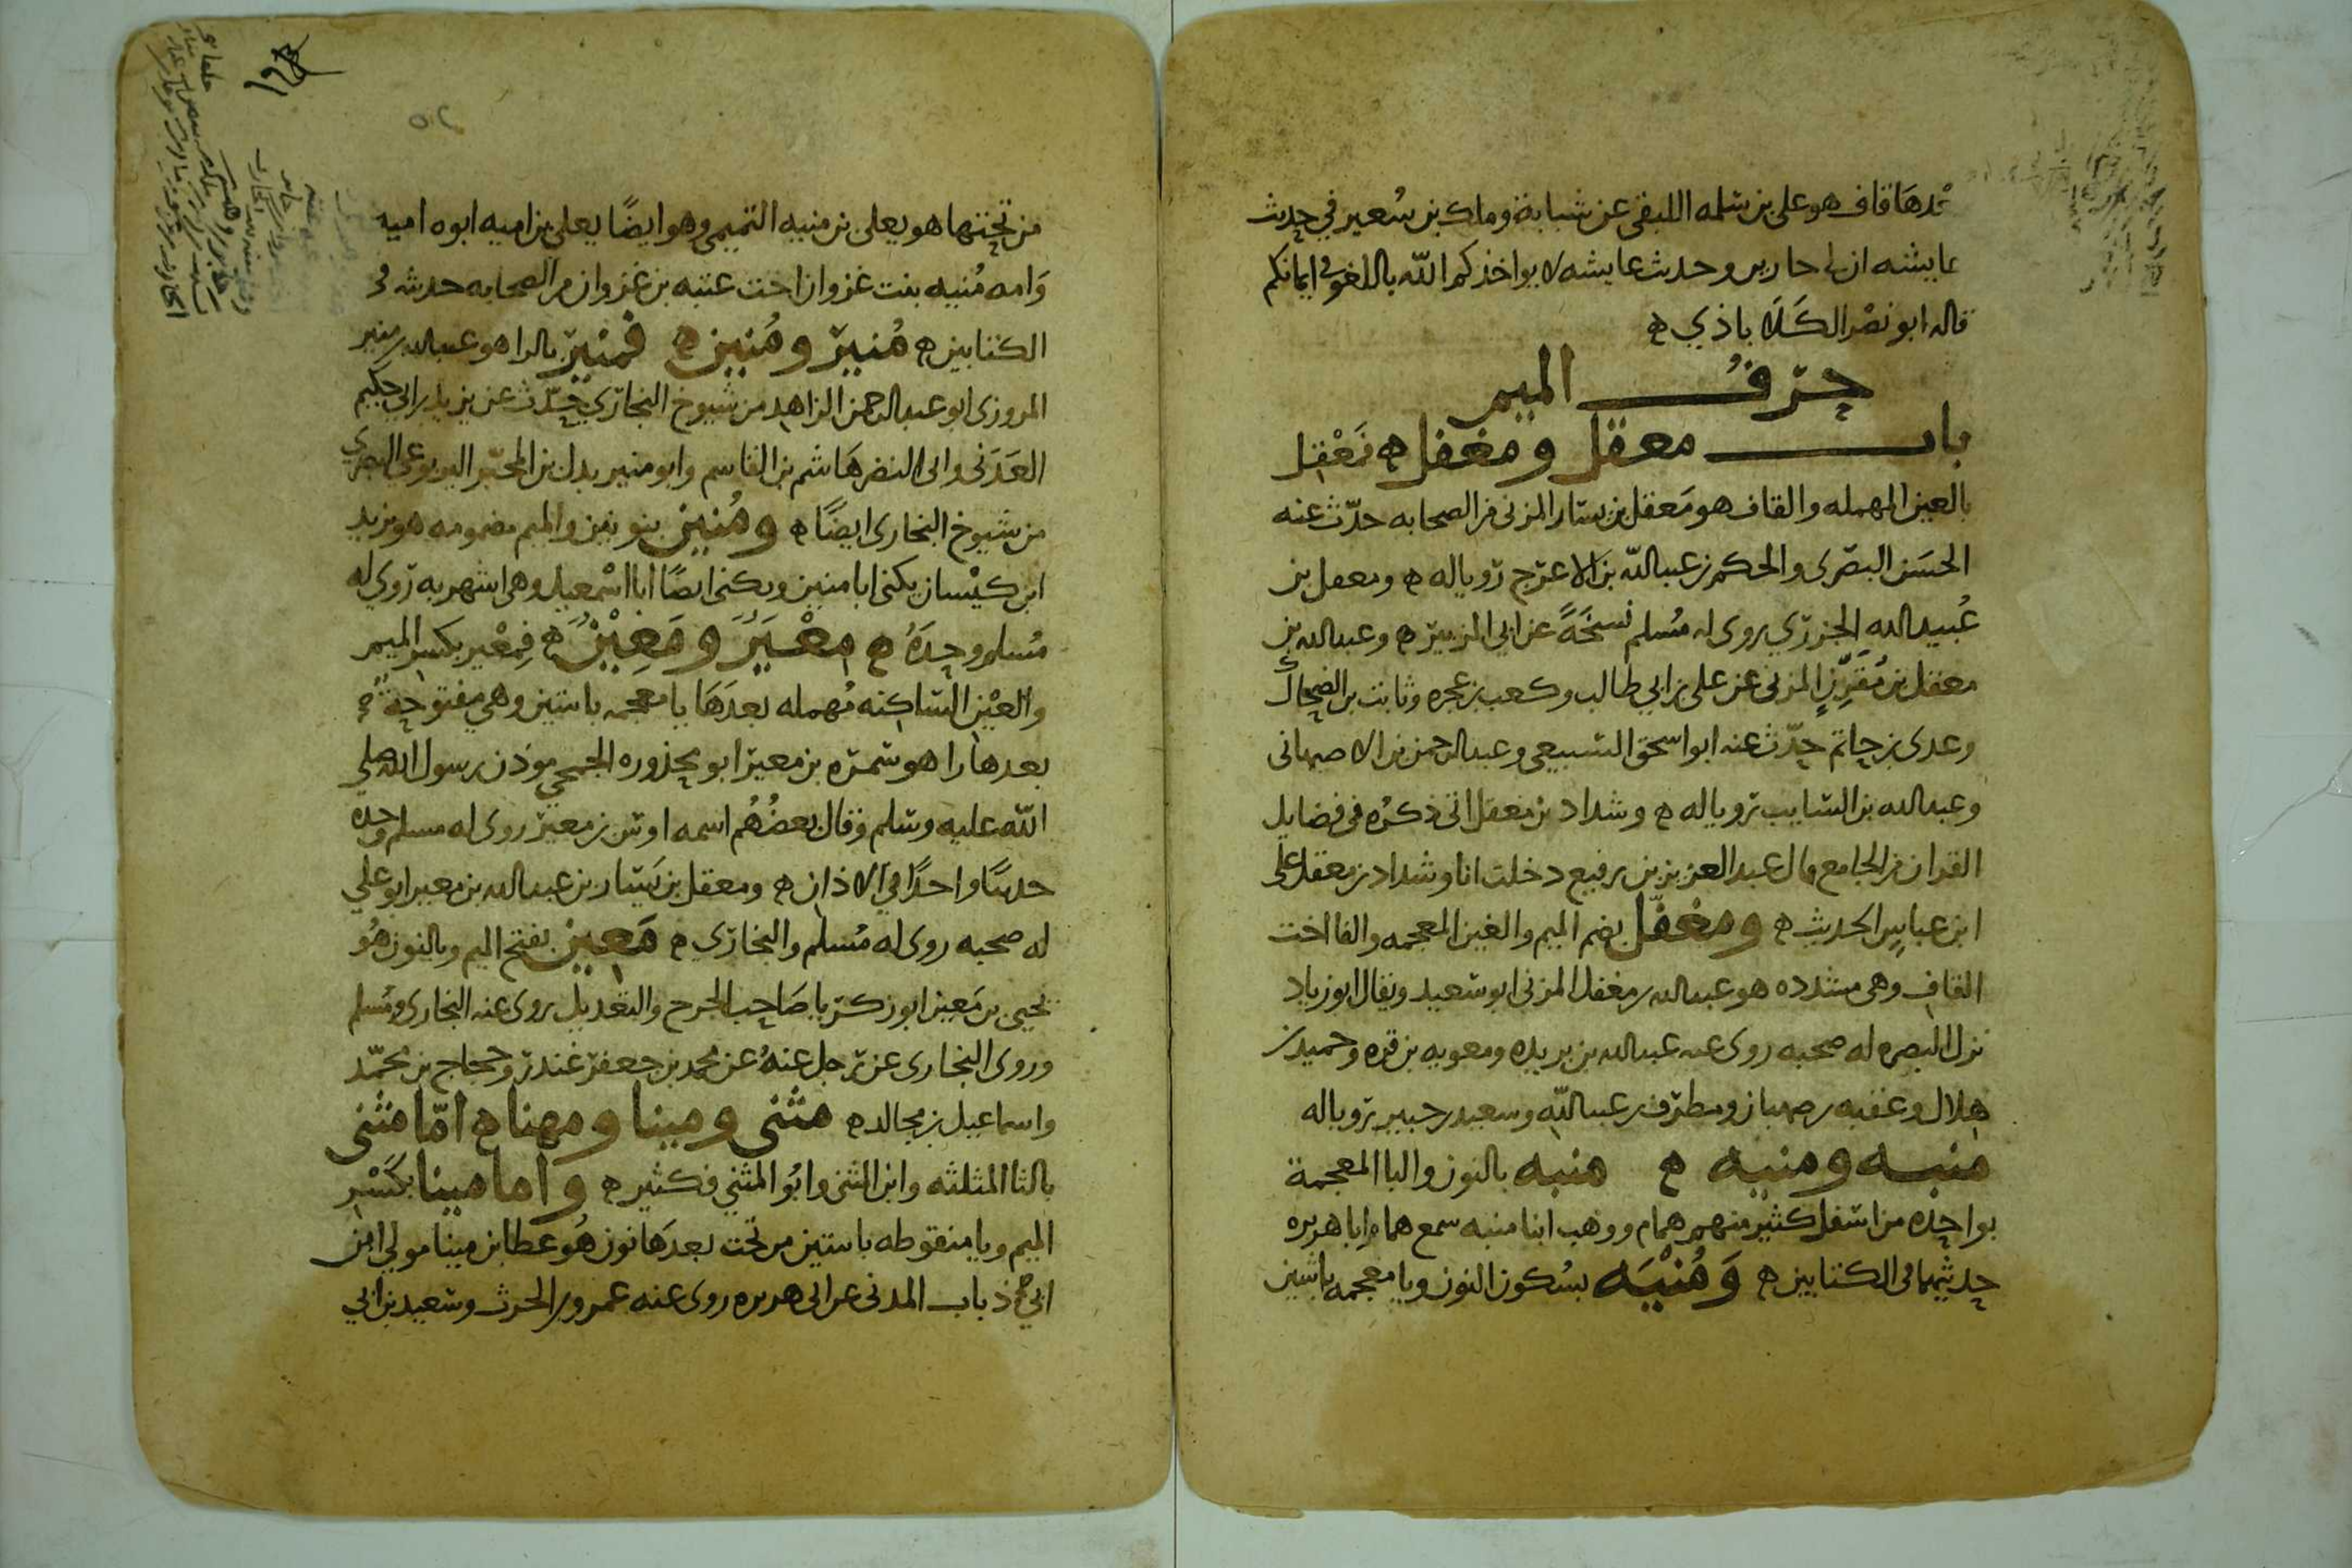 بعدها قاف هو علي بن سلمه اللبقي عن شبابة ومالك بن سُعير في حديث
عايشه ان لي جارين وحديث عايشه لا يواخذكم الله باللغو في ايمانكم
قاله ابو نصْر الكَلَاباذي ه
حرفُ الميم
باب معقل ومغفل ه مَعْقِل
بالعين المهمله والقاف هو مَعقل بن يسار المزني من الصحابه حدّث عنه
الحسَن البصري والحكم بن عبد الله بن الاعرج رويا له ه ومعقل بن
عُبيد الله الجزري روى له مُسلم نسخَةً عن ابي الزبير ه وعبد الله بن
معقل بن مُقَرِّنٍ المزني عن علي بن ابي طالب وكعب بن عجره وثابت بن الضحاك
وعدى بن حاتم حدّث عنه ابو اسحق السبيعي وعبد الرحمن بن الاصبهانى
وعبد الله بن السايب رويا له ه وشداد بن معقل اتى ذكرُه في فضايل
القران من الجامع قال عبد العزيز بن رفيع دخلت انا وشداد بن معقل على
ابن عباسٍ الحديث ه ومغفّل بضم الميم والغين المعجمه والفا اخت
القاف وهى مشدده هو عبد الله بن مغفل المزني ابو سَعيد ويقال ابو زياد
نزل البصره له صحبه روى عنه عبد الله بن بريده ومعويه بن قره وحميد بن
هلال وعقبه بن صهبان ومطرّف بن عبد الله وسعيد بن جبير رويا له
منبه ومنيه ه منبه بالنون والبا المعجمة
بواحِده من اسفل كثير منهم همام ووهب ابنا منبه سمع همام ابا هريره
حديثهما في الكتابين ه وَمُنْيَه بسُكون النون ويا معجمه باثنين
من تحتها هو يعلى بن منيه التميمي وهو ايضًا يعلى بن اميه ابوه اميه
وَامه مُنيه بنت غزوان اخت عتبه بن غزوان من الصحابه حديثه في
الكتابين ه مُنير ومُنين ه فمنير بالرا هو عبد الله بن منير
المروزى ابو عبد الرحمن الزاهد من شيوخ البخاري حَدّث عن يزيد بن ابي حكيم
العَدَنى وابى النضر هَاشم بن القاسم وابو منير بدل بن المحبّر اليربوعي البصري
من شيوخ البخارى ايضًا ه ومُنين بنونين والميم مضمومه هو يزيد
ابن كيْسان يكنى ابا منين ويكنى ايضًا ابا اسْمعيل وهى اشهر به رَوى له
مُسلم وحدَهُ ه مِعْيَرٌ ومَعِيْنٌ ه فمِعْير بكسر الميم
والعيْن الساكنه مُهمله بعدَهَا يا معجمه باثنين وهي مفتوحةٌ
بعدها را هو سَمُره بن معير ابو محذوره الجمحي موذن رسول الله صلى
الله عليه وسلم وقال بعضُهُم اسمه اوس بن معير روى له مسلم وحده
حديثًا واحدًا في الاذان ه ومعقل بن يَسَار بن عبد الله بن معير ابو علي
له صحبه روى له مُسلم والبخاري ه مَعِين بفتح الميم وبالنون هُو
يحيى بن مَعين ابو زكريا صَاحب الجرح والتعديل روى عنه البخارى ومُسلم
وروى البخارى عن رجل عنهُ عن محمد بن جعفر غندر وحجاج بن محمّد
واسماعيل بن مجالد ه مثنى ومينا ومهنا ه امّا مثنى
بالثا المثلثه وابن المثنى وابُو المثنى فكثير ه واما مينا بكَسْر
الميم ويا منقوطه باثنين من تحت بعدَها نون هُو عطا بن مينا مولى ابن
ابي ذباب المدنى عن ابى هريره روى عنه عمرو بن الحرث وسَعيد بن ابي